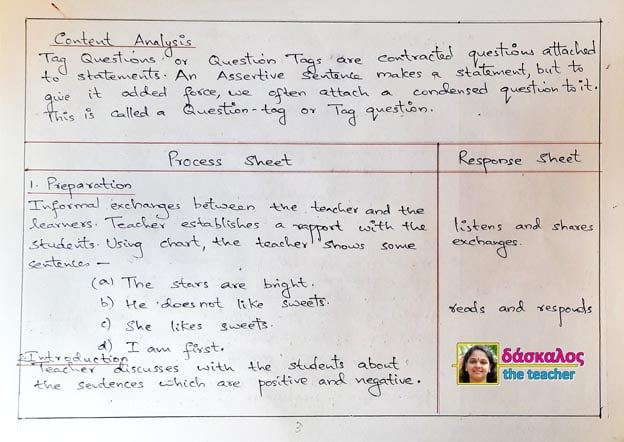 Content Analysis
Tag Questions or Question Tags are contracted questions attached
to statements. An Assertive sentence makes a statement, but to
give it added force, we often attach a condensed question to it.
This is called a Question-tag or Tag question.
Process Sheet
Response Sheet
1. Preparation
Informal exchanges between the teacher and the
learners. Teacher establishes a rapport with the
students. Using chart, the teacher shows some
sentences –
(a) The stars are bright.
b) He does not like sweets.
c) She likes sweets.
d) I am first.
listens and shares
exchanges.
reads and responds
2. Introduction
Teacher discusses with the students about
the sentences which are positive and negative.
δάσκαλος
the teacher
3